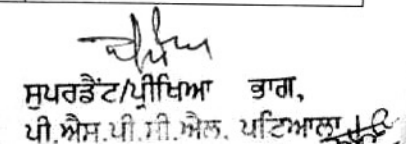 ਸੁਪਰਡੈਂਟ/ਪ੍ਰੀਖਿਆ ਭਾਗ,
ਪੀ.ਐਸ.ਪੀ.ਸੀ.ਐਲ. ਪਟਿਆਲਾ